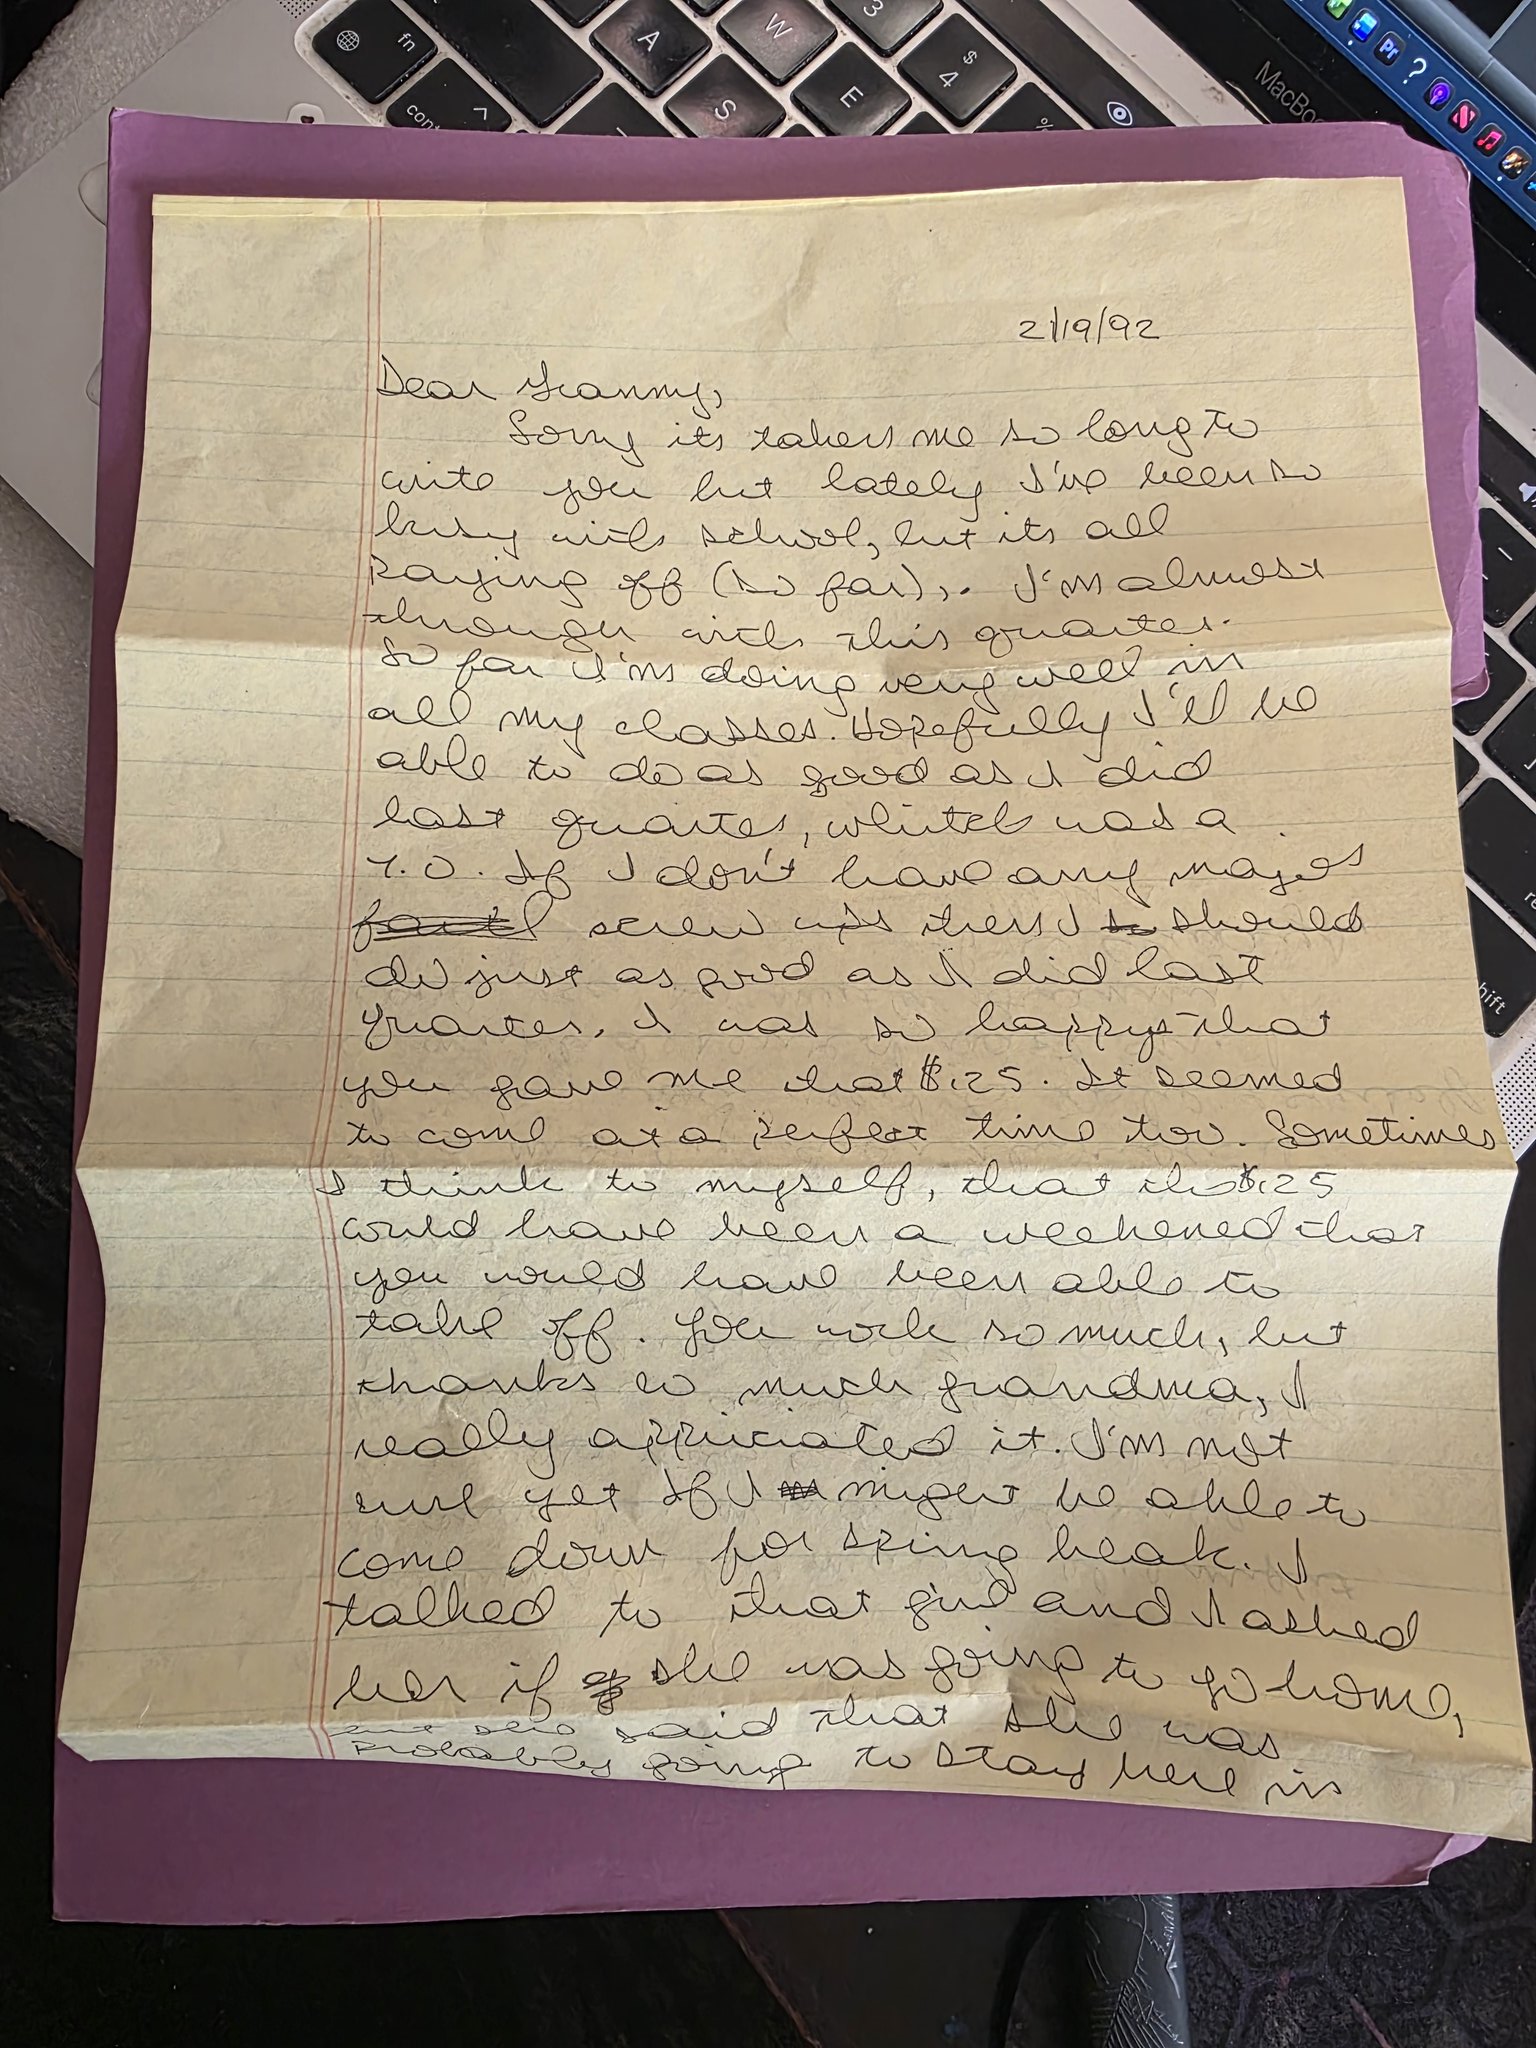 fn
A
W
3
control
S
E
$
4
%
MacBoo
Pr
?
shift
2/19/92
Dear Granny,
Sorry its taken me so long to
write you but lately I've been so
busy with school, but its all
paying off (so far),. I'm almost
through with this quarter.
So far I'm doing very well in
all my classes. Hopefully I'll be
able to do as good as I did
last quarter, whitch was a
. If I don't have any major
screw ups then I should
do just as good as I did last
quarter. I was so happy that
you gave me that $.25. It seemed
to come at a perfect time too. Sometimes
I think to myself, that the $.25
could have been a weekened that
you would have been able to
take off. You work so much, but
thanks so much grandma, I
really appriciated it. I'm not
sure yet if I might be able to
come down for spring break. I
talked to that girl and I asked
her if she was going to go home,
but she said that she was
probably going to stay here in